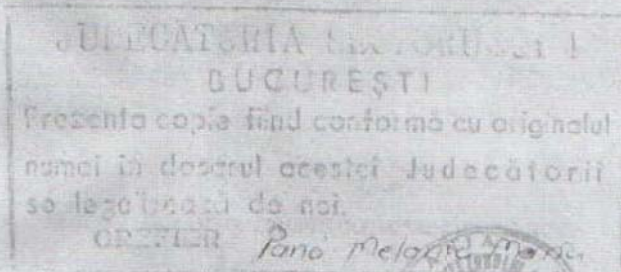 JUDECATORIA SECTORULUI 1
BUCUREŞTI
Prezenta copie fiind conformă cu originalul
numai în dosarul acestei Judecătorii
se legalizează de noi.
GREFIER Pană Melania Maria